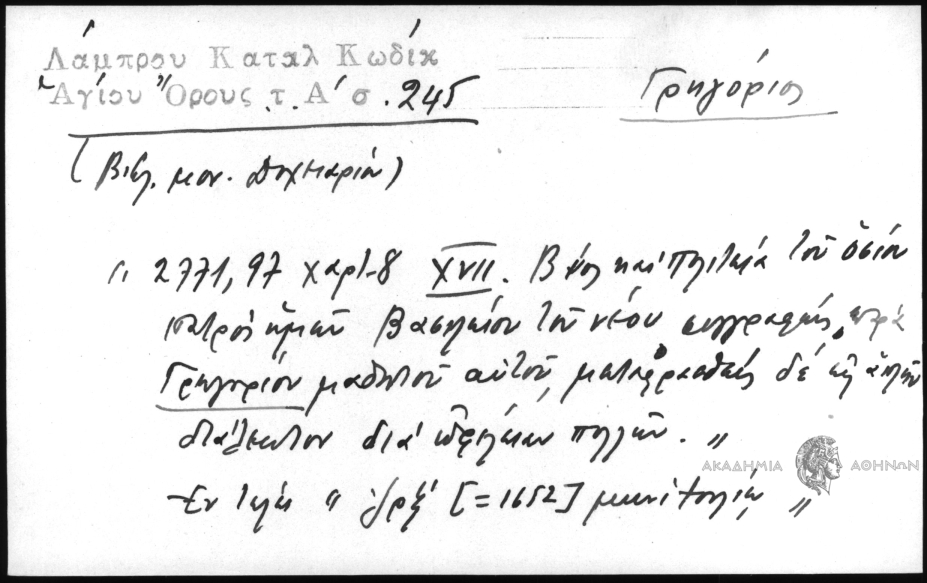 Λάμπρου Καταλ Κωδίκ
Ἁγίου Ὄρους τ. Α' σ. 245
Γρηγόριος
(Βιβλ. μον. Δοχειαρίου)
2771,97 χαρτ-8 XVII. Βίος καὶ πολιτεία τοῦ ὁσίου
πατρὸς ἡμῶν Βασιλείου τοῦ νέου συγγραφεὶς παρὰ
Γρηγορίου μαθητοῦ αὐτοῦ, μεταφρασθεὶς δὲ εἰς ἁπλῆν
διάλεκτον διὰ ὠφέλειαν πολλῶν. "
Ἐν τέλει " [=1652] "
ΑΚΑΔΗΜΙΑ ΑΘΗΝΩΝ